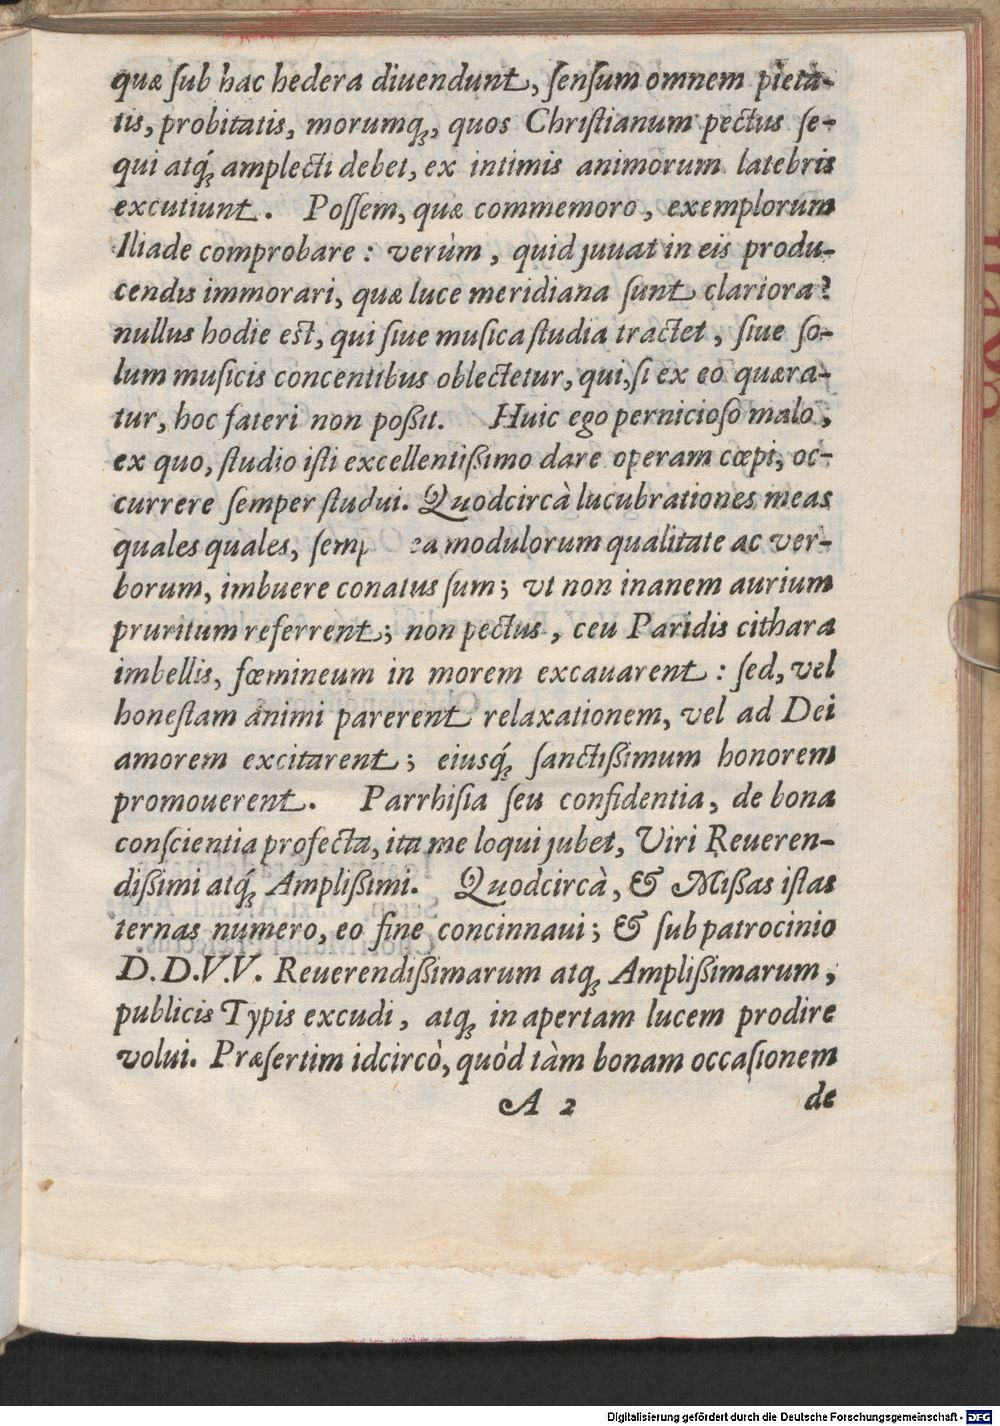 quæ ſub hac hedera diuendunt, ſenſum omnem pietà-
tis, probitatis, morumq́ꝫ, quos Chriſtianum pectus ſe-
qui atq́ꝫ amplecti debet, ex intimis animorum latebris
excutiunt. Poſſem, quæ commemoro, exemplorum
Iliade comprobare: verùm, quid juuat in eis produ-
cendis immorari, quæ luce meridiana ſunt clariora?
nullus hodie eſt, qui ſiue muſica ſtudia tractet, ſiue ſo-
lum muſicis concentibus oblectetur, qui, ſi ex eo quæra-
tur, hoc fateri non poßit. Huic ego pernicioſo malo,
ex quo, ſtudio iſti excellentißimo dare operam cœpi, oc-
currere ſemper ſtudui. Quodcircà lucubrationes meas
quales quales, ea modulorum qualitate ac ver-
borum, imbuere conatus ſum; vt non inanem aurium
pruritum referrent; non pectus, ceu Paridis cithara
imbellis, fœmineum in morem excauarent: ſed, vel
honeſtam animi parerent relaxationem, vel ad Dei
amorem excitarent; eiusq́ꝫ ſanctißimum honorem
promouerent. Parrhiſia ſeu confidentia, de bona
conſcientia profecta, ita me loqui jubet, Viri Reueren-
dißimi atq́ꝫ Amplißimi. Quodcircà, & Mißas iſtas
ternas numero, eo fine concinnaui; & ſub patrocinio
D.D.V.V. Reuerendißimarum atqꝫ Amplißimarum,
publicis Typis excudi, atqꝫ in apertam lucem prodire
volui. Præſertim idcircò, quòd tàm bonam occaſionem
A 2 de
Digitalisierung gefördert durch die Deutsche Forschungsgemeinschaft - DFG